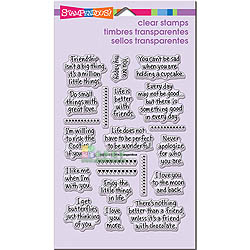 STAMPENDOUS!
clear stamps
timbres transparentes
sellos transparentes
Friendship
isn't a big thing,
it's a million
little things.
You are
my happy
You can't be sad
when you are
holding a cupcake.
Do small
things with
great love.
Life is
better
with
friends.
Every day
may not be good...
but there is
something good
in every day.
I'm willing
to risk the
Coot
if you
Life does not
have to be perfect
to be wonderful
Never
apologize
for who
you are.
I like me
when I'm
with you.
Enjoy
the little
things
in life
I love you
to the moon
and back.
I get
butterflies
just thinking
of you
I love
you
more
There's nothing
better than a friend
unless it's a friend
with chocolate.